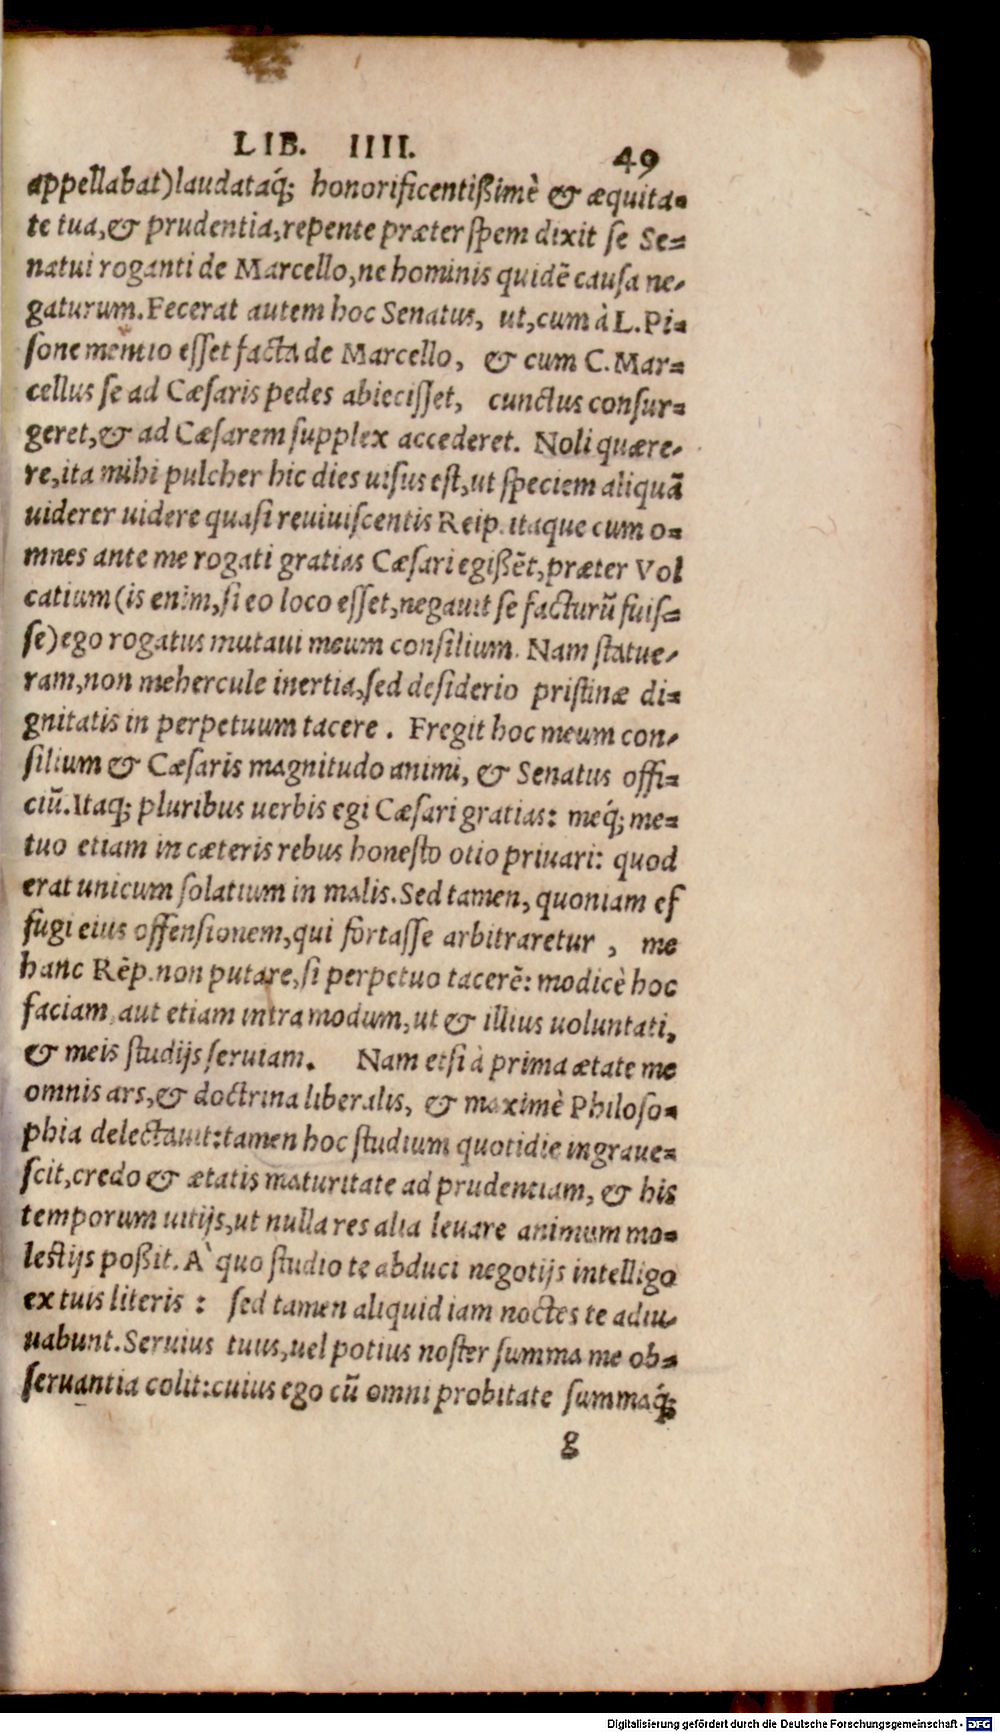 LIB. IIII. 49
appellabat) laudataq́; honorificentißimè & æquita-
te tua, & prudentia, repente præter spem dixit se Se-
natui roganti de Marcello, ne hominis quidē causa ne-
gaturum. Fecerat autem hoc Senatus, ut, cum à L. Pi-
sone mentio esset facta de Marcello, & cum C. Mar-
cellus se ad Cæsaris pedes abiecisset, cunctus consur-
geret, & ad Cæsarem supplex accederet. Noli quære-
re, ita mihi pulcher hic dies uisus est, ut speciem aliquā
uiderer uidere quasi reuiuiscentis Reip. itaque cum o-
mnes ante me rogati gratias Cæsari egißēt, præter Vol
catium (is enim, si eo loco esset, negauit se facturū fuis-
se) ego rogatus mutaui meum consilium. Nam statue-
ram, non mehercule inertia, sed desiderio pristinæ di-
gnitatis in perpetuum tacere. Fregit hoc meum con-
silium & Cæsaris magnitudo animi, & Senatus offi-
ciū. Itaq; pluribus uerbis egi Cæsari gratias: meq́; me-
tuo etiam in cæteris rebus honesto otio priuari: quod
erat unicum solatium in malis. Sed tamen, quoniam ef
fugi eius offensionem, qui fortasse arbitraretur, me
hanc Rēp. non putare, si perpetuo tacerē: modicè hoc
faciam, aut etiam intra modum, ut & illius uoluntati,
& meis studijs seruiam. Nam etsi à prima ætate me
omnis ars, & doctrina liberalis, & maximè Philoso-
phia delectauit: tamen hoc studium quotidie ingraue-
scit, credo & ætatis maturitate ad prudentiam, & his
temporum uitijs, ut nulla res alia leuare animum mo-
lestijs poßit. A` quo studio te abduci negotijs intelligo
ex tuis literis: sed tamen aliquid iam noctes te adiu-
uabunt. Seruius tuus, uel potius noster summa me ob-
seruantia colit: cuius ego cū omni probitate summaq́;
g
Digitalisierung gefördert durch die Deutsche Forschungsgemeinschaft - DFG